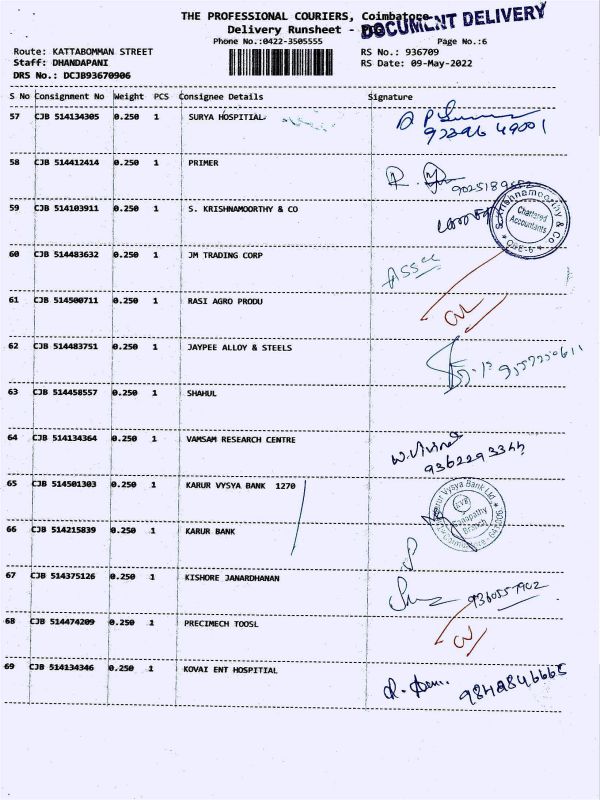 THE PROFESSIONAL COURIERS, Coimbatore
DOCUMENT DELIVERY
Delivery Runsheet -
Phone No.:0422-3505555 Page No.:6
Route: KATTABOMMAN STREET RS No.: 936709
Staff: DHANDAPANI RS Date: 09-May-2022
DRS No.: DCJB93670906
S No Consignment No Weight PCS Consignee Details Signature
57 CJB 514134305 0.250 1 SURYA HOSPITIAL
58 CJB 514412414 0.250 1 PRIMER
59 CJB 514103911 0.250 1 S. KRISHNAMOORTHY & CO
S. Krishnamoorthy & Co.
Chartered
Accountants
60 CJB 514483632 0.250 1 JM TRADING CORP
61 CJB 514500711 0.250 1 RASI AGRO PRODU
62 CJB 514483751 0.250 1 JAYPEE ALLOY & STEELS
63 CJB 514458557 0.250 1 SHAHUL
64 CJB 514134364 0.250 1 VAMSAM RESEARCH CENTRE
9362293345
65 CJB 514501303 0.250 1 KARUR VYSYA BANK 1270
Karur Vysya Bank Ltd.
KVB
Ganapathy
Branch
66 CJB 514215839 0.250 1 KARUR BANK
67 CJB 514375126 0.250 1 KISHORE JANARDHANAN
9360557902
68 CJB 514474209 0.250 1 PRECIMECH TOOSL
69 CJB 514134346 0.250 1 KOVAI ENT HOSPITIAL
9842846665